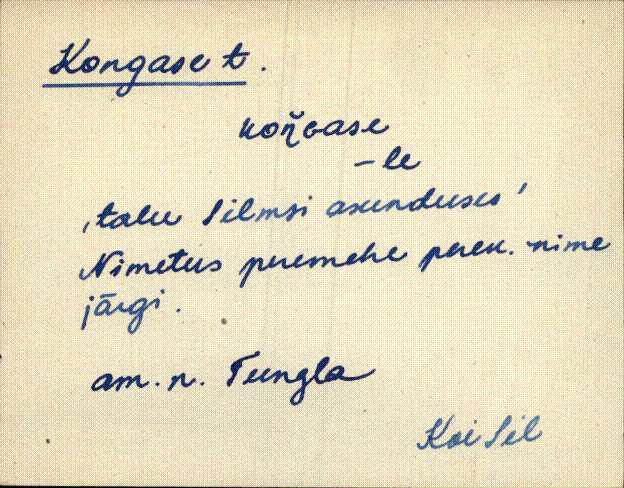 Kongase t.
koŋ̆Gase
-le
'talu Silmsi asunduses'
Nimetus peremehe perek. nime
järgi.
am. n. Tungla
Koi Sil